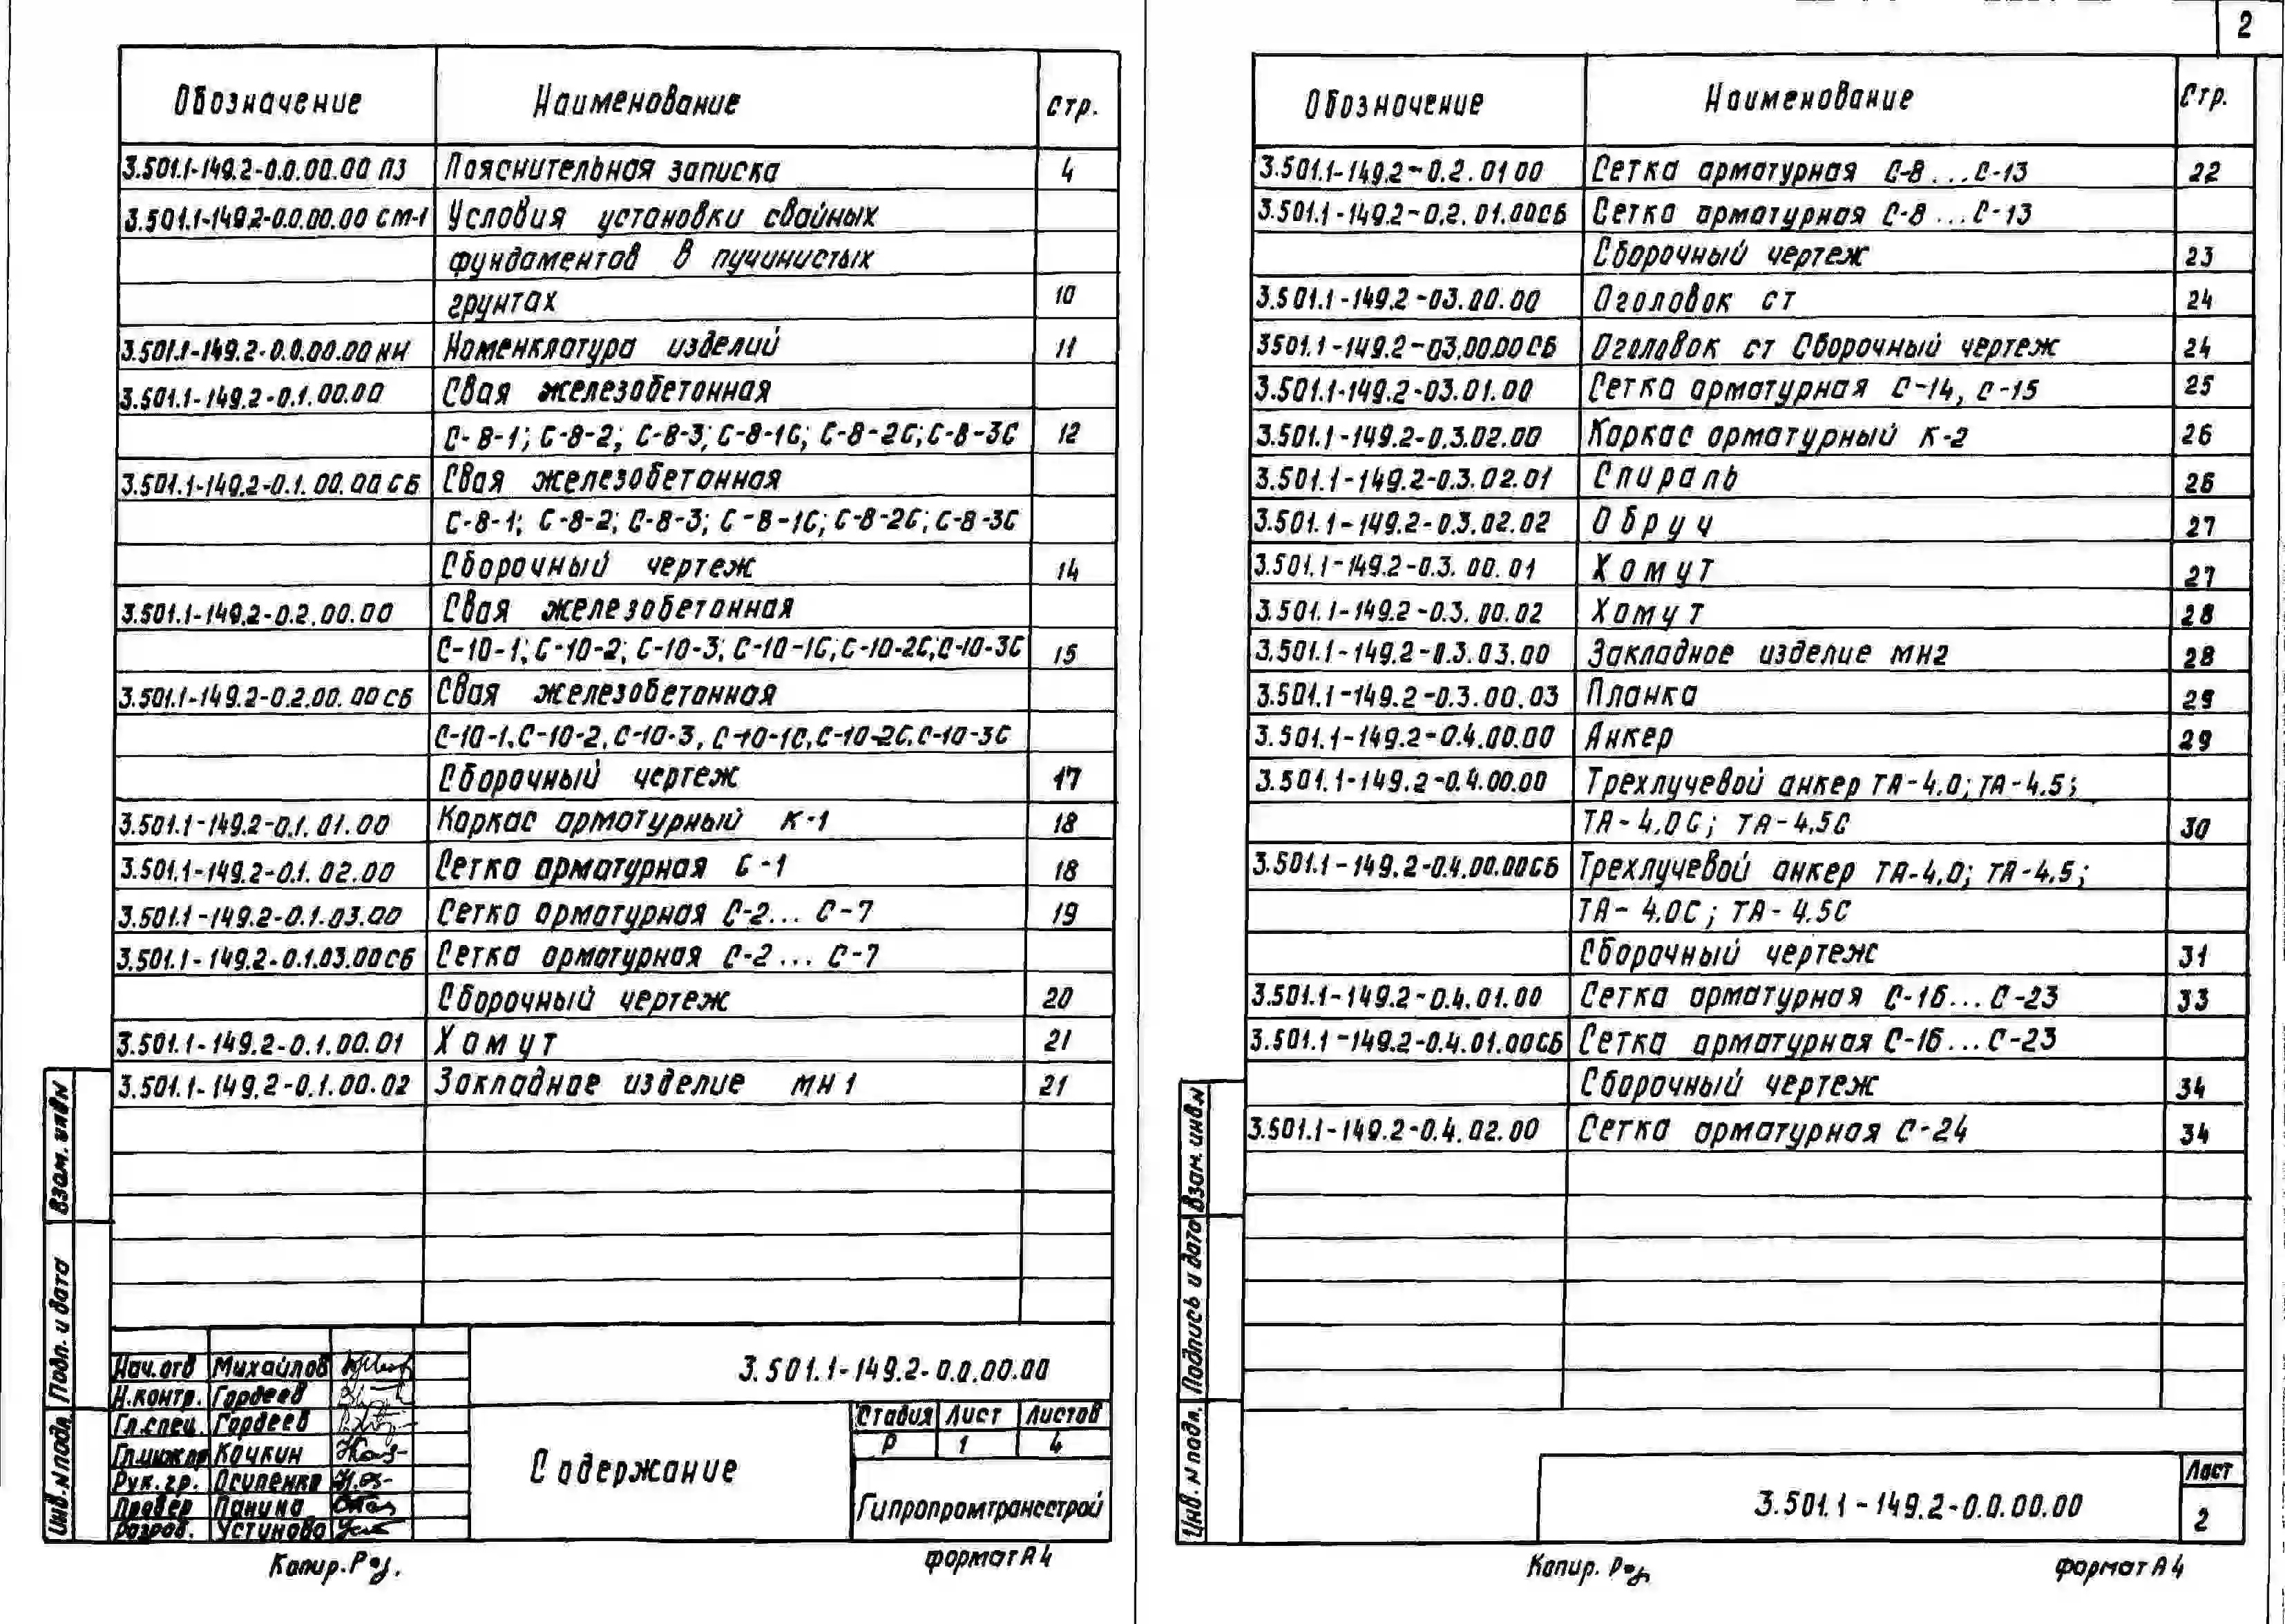 Обозначение Наименование стр.
3.501.1-149.2-0.0.00.00 ПЗ Пояснительная записка 4
3.501.1-149.2-0.0.00.00 СМ-1 Условия установки свайных
фундаментов в пучинистых
грунтах 10
3.501.1-149.2-0.0.00.00 НИ Номенклатура изделий 11
3.501.1-149.2-0.1.00.00 Свая железобетонная
С-8-1; С-8-2; С-8-3; С-8-1С; С-8-2С; С-8-3С 12
3.501.1-149.2-0.1.00.00 СБ Свая железобетонная
С-8-1; С-8-2; С-8-3; С-8-1С; С-8-2С; С-8-3С
Сборочный чертеж 14
3.501.1-149.2-0.2.00.00 Свая железобетонная
С-10-1; С-10-2; С-10-3; С-10-1С; С-10-2С; С-10-3С 15
3.501.1-149.2-0.2.00.00 СБ Свая железобетонная
С-10-1, С-10-2, С-10-3, С-10-1С, С-10-2С, С-10-3С
Сборочный чертеж 17
3.501.1-149.2-0.1.01.00 Каркас арматурный К-1 18
3.501.1-149.2-0.1.02.00 Сетка арматурная С-1 18
3.501.1-149.2-0.1.03.00 Сетка арматурная С-2... С-7 19
3.501.1-149.2-0.1.03.00СБ Сетка арматурная С-2... С-7
Сборочный чертеж 20
3.501.1-149.2-0.1.00.01 Хомут 21
3.501.1-149.2-0.1.00.02 Закладное изделие МН1 21
Взам. инв N
Подп. и дата
Инв. N подл.
Нач.отд Михайлов
Н.контр. Гордеев
Гл.спец. Гордеев
Гл.инж.пр Кочкин
Рук.гр. Осипенко
Провер Панина
Разраб. Устинова
3.501.1-149.2-0.0.00.00
Содержание
Стадия Лист Листов
Р 1 4
Гипропромтрансстрой
Копир.
формат А4
2
Обозначение Наименование Стр.
3.501.1-149.2-0.2.01 00 Сетка арматурная С-8...С-13 22
3.501.1-149.2-0.2.01.00СБ Сетка арматурная С-8...С-13
Сборочный чертеж 23
3.501.1-149.2-03.00.00 Оголовок ст 24
3501.1-149.2-03.00.00СБ Оголовок ст Сборочный чертеж 24
3.501.1-149.2-03.01.00 Сетка арматурная С-14, С-15 25
3.501.1-149.2-0.3.02.00 Каркас арматурный К-2 26
3.501.1-149.2-0.3.02.01 Спираль 26
3.501.1-149.2-0.3.02.02 Обруч 27
3.501.1-149.2-0.3.00.01 Хомут 27
3.501.1-149.2-0.3.00.02 Хомут 28
3.501.1-149.2-0.3.03.00 Закладное изделие МН2 28
3.501.1-149.2-0.3.00.03 Планка 29
3.501.1-149.2-0.4.00.00 Анкер 29
3.501.1-149.2-0.4.00.00 Трехлучевой анкер ТА-4.0; ТА-4.5;
ТА-4.0С; ТА-4.5С 30
3.501.1-149.2-0.4.00.00СБ Трехлучевой анкер ТА-4.0; ТА-4.5;
ТА-4.0С; ТА-4.5С
Сборочный чертеж 31
3.501.1-149.2-0.4.01.00 Сетка арматурная С-16...С-23 33
3.501.1-149.2-0.4.01.00СБ Сетка арматурная С-16...С-23
Сборочный чертеж 34
3.501.1-149.2-0.4.02.00 Сетка арматурная С-24 34
Взам. инв. N
Подпись и дата
Инв. N подл.
3.501.1-149.2-0.0.00.00
Лист
2
Копир.
формат А4